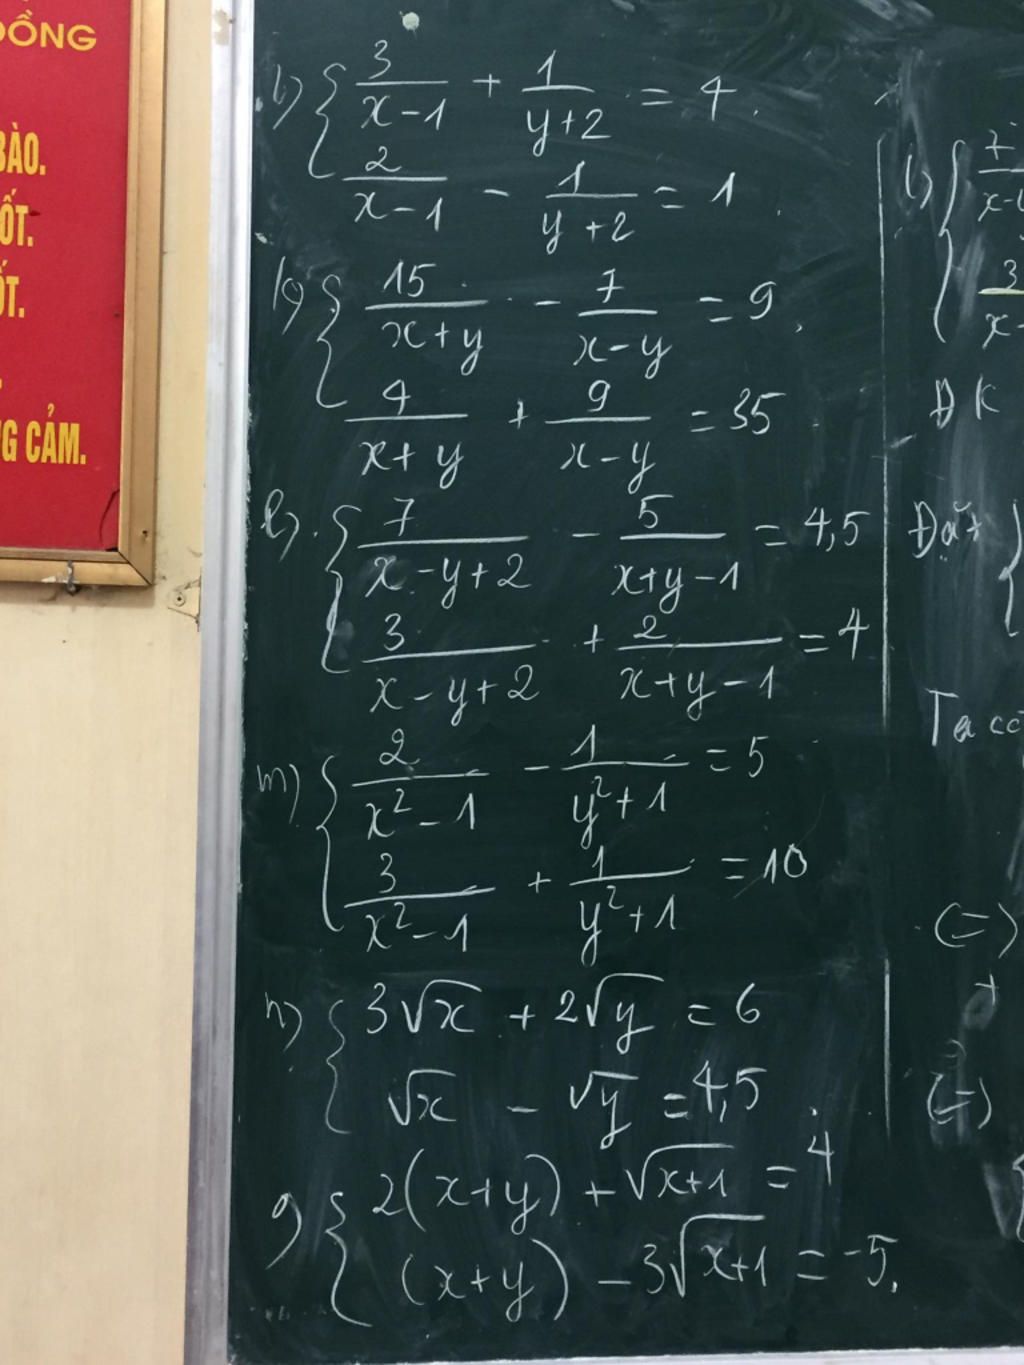 ĐỒNG
BÀO.
ỐT.
ỐT.
G CẢM.
i) { 3/(x-1) + 1/(y+2) = 4.
2/(x-1) - 1/(y+2) = 1.
k) { 15/(x+y) - 7/(x-y) = 9,
4/(x+y) + 9/(x-y) = 35
l) { 7/(x-y+2) - 5/(x+y-1) = 4,5
3/(x-y+2) + 2/(x+y-1) = 4
m) { 2/(x²-1) - 1/(y²+1) = 5
3/(x²-1) + 1/(y²+1) = 10
n) { 3√x + 2√y = 6
√x - √y = 4,5
g) { 2(x+y) + √(x+1) = 4
(x+y) - 3√(x+1) = -5.
l) { 7/x-
3/x-
ĐK
Đặt {
Ta có
(=)
+
(=)